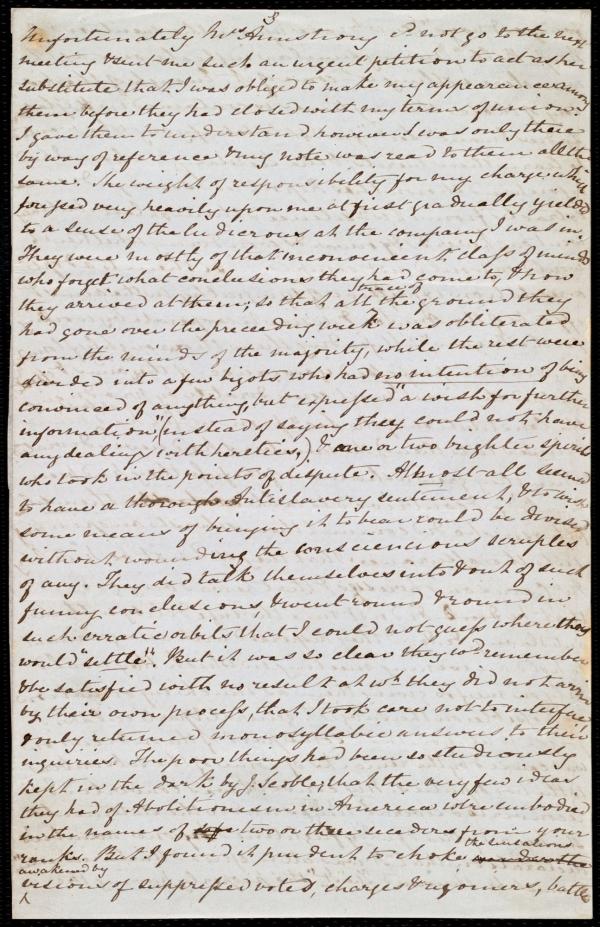 3
Unfortunately Mrs Armstrong cd not go to the next
meeting & sent me such an urgent petition to act as her
substitute that I was obliged to make my appearance among
them before they had closed with my terms of union.
I gave them to understand however I was only there
by way of reference & my note was read to them all the
same. The weight of responsibility for my charge which
pressed very heavily upon me at first gradually yielded
to a sense of the ludicrous at the company I was in.
They were mostly of that inconvenient class of minds
who forget what conclusions they had come to, & how
they arrived at them; so that all trace of the ground they
had gone over the preceeding week was obliterated
from the minds of the majority, while the rest were
divided into a few bigots who had no intention of being
convinced of anything, but expressed "a wish for further
information", (instead of saying they could not have
any dealings with heretics,) & one or two brighter spirits
who took in the points of dispute. Almost all seemed
to have a thorough Antislavery sentiment, & to wish
some means of bringing it to bear could be devised
without wounding the consciencious scruples
of any. They did talk themselves into & out of such
funny conclusions, & went round & round in
such erratic orbits that I could not guess where they
would "settle". But it was so clear they wd remember
& be satisfied with no result at wh they did not arrive
by their own process, that I took care not to interfere,
& only returned monosyllabic answers to their
inquiries. The poor things had been so studiously
kept in the dark by J. Scoble, that the very few ideas
they had of Abolitionism in America were embodied
in the names of two or three seceders from your
ranks. But I found it prudent to choke the sensations
awakened by
visions of suppressed votes, charges & rejoiners, battle